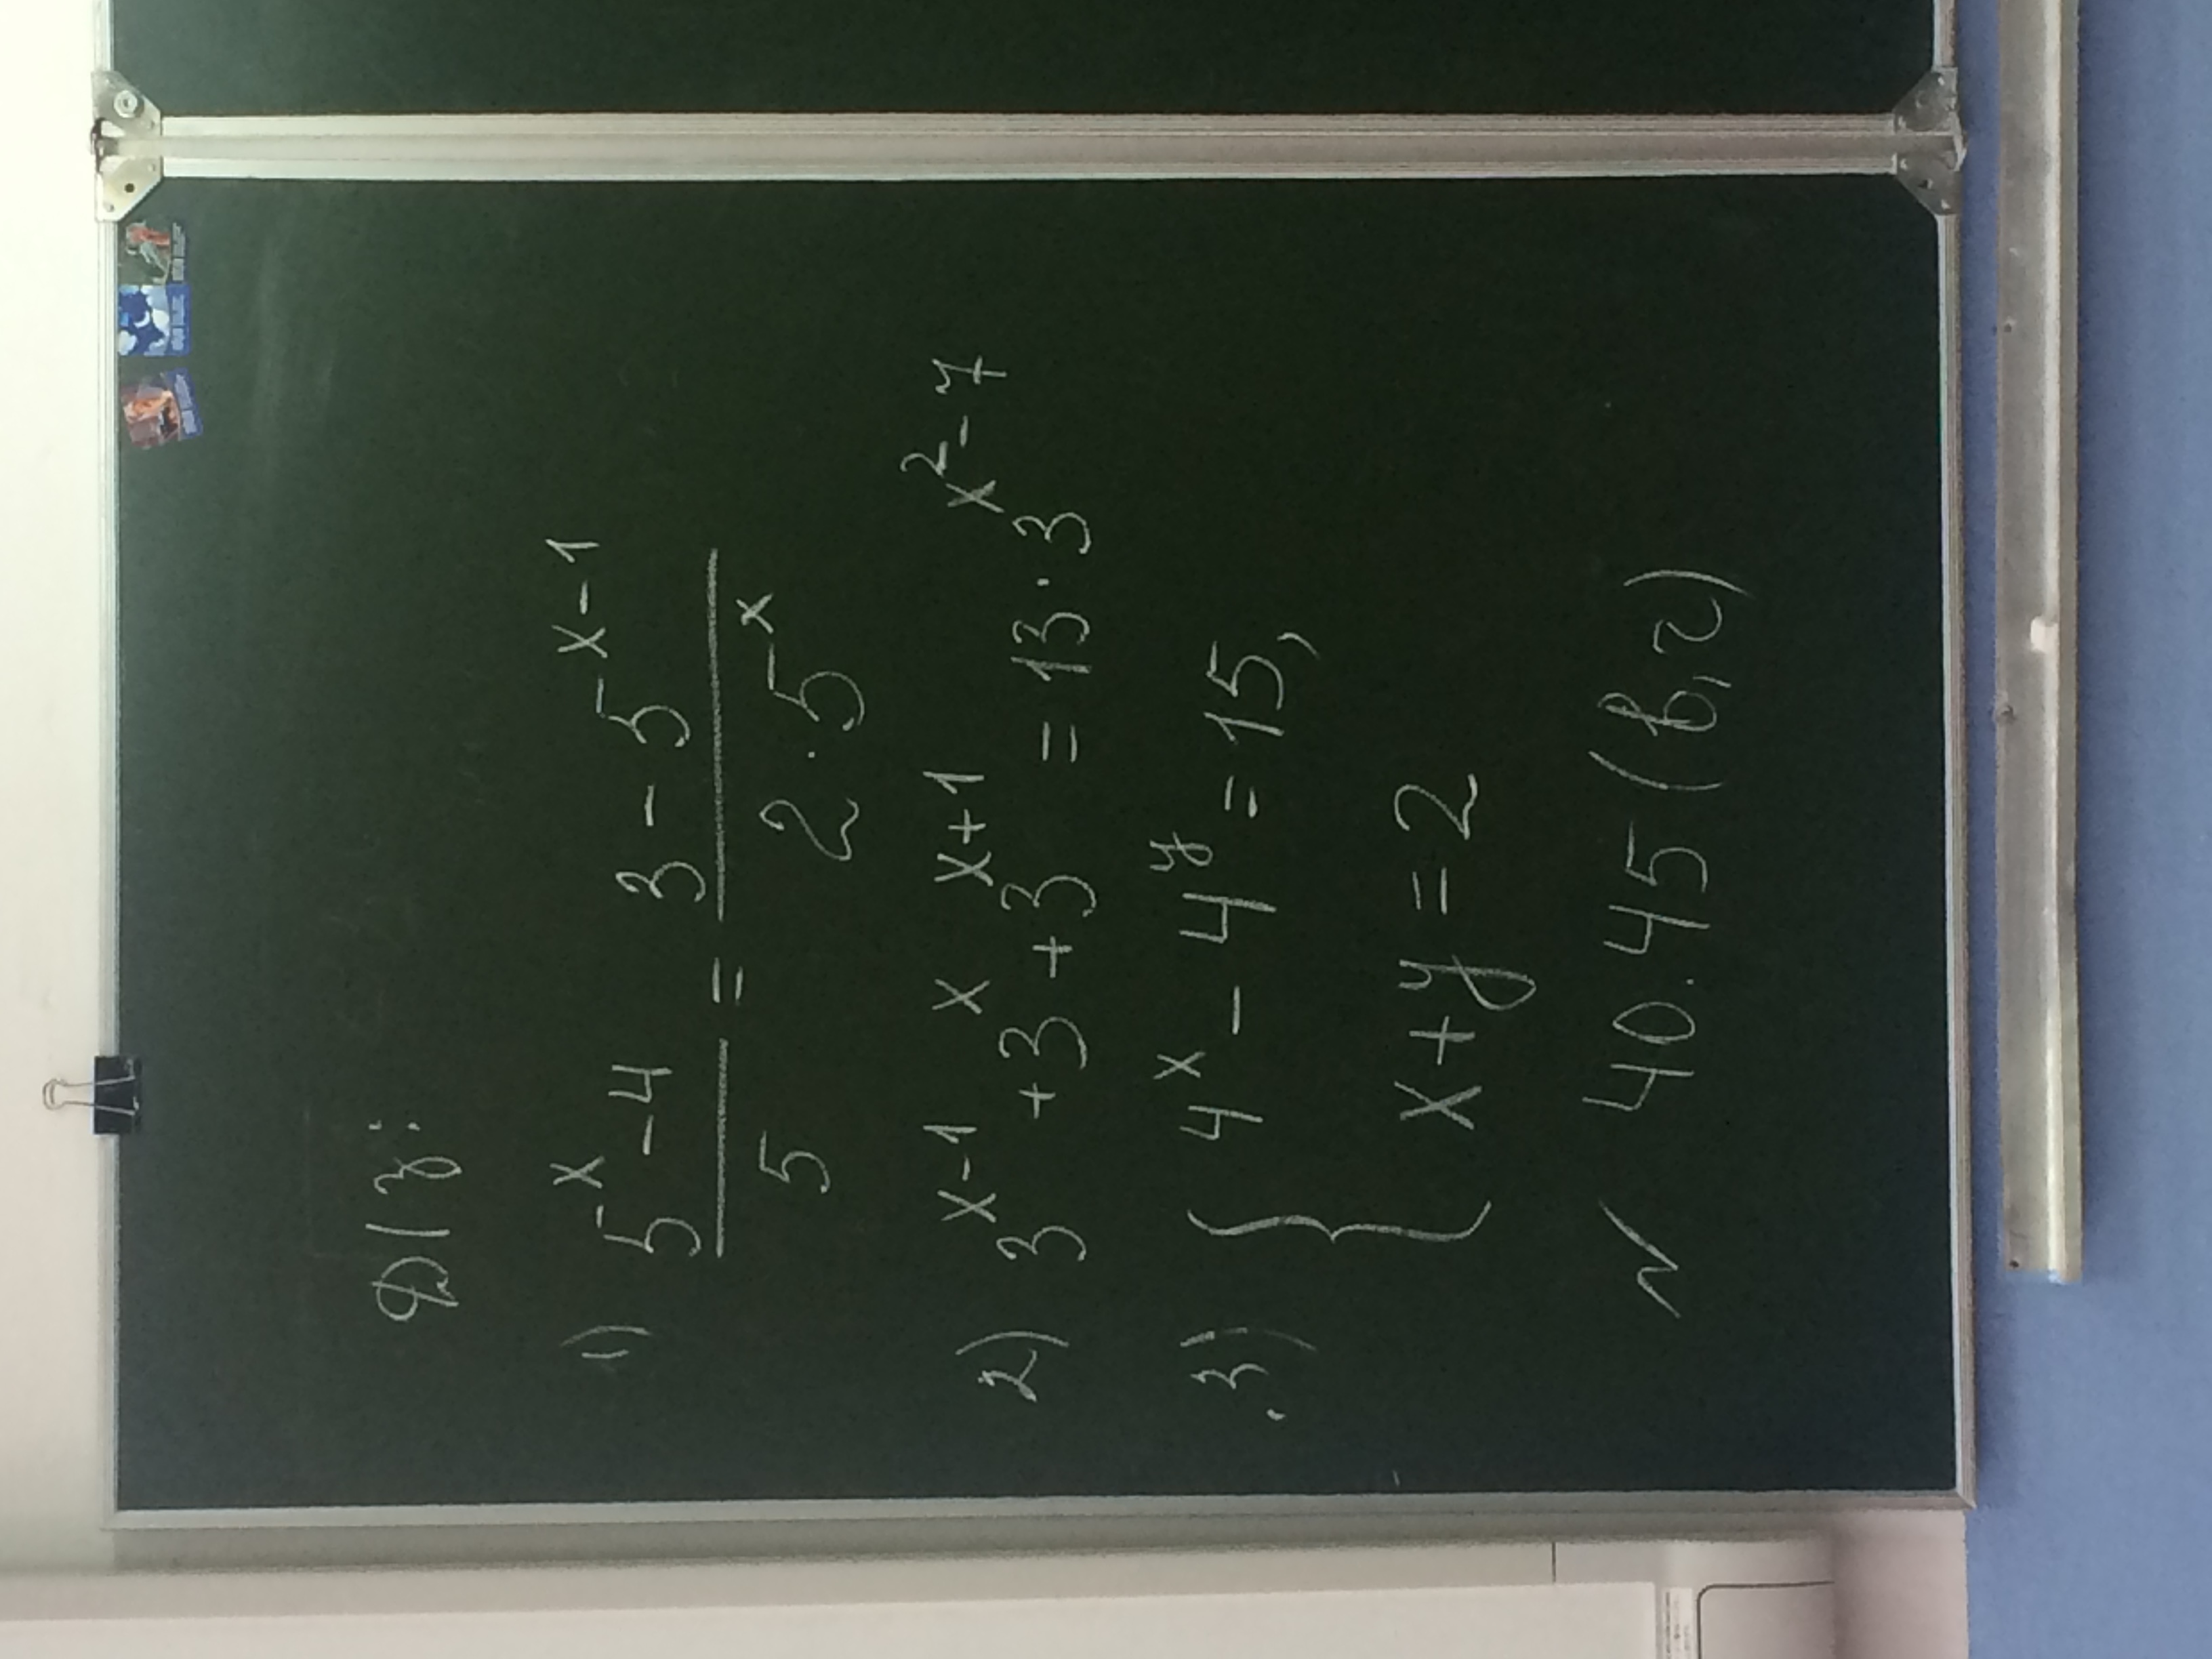 д/з:
1) (5^x - 4)/5 = (3 - 5^(x-1))/(2 · 5^x)
2) 3^(x-1) + 3^x + 3^(x+1) = 13 · 3^(x^2-7)
3) { 4^x - 4^y = 15,
x + y = 2
N 40.45 (в, г)